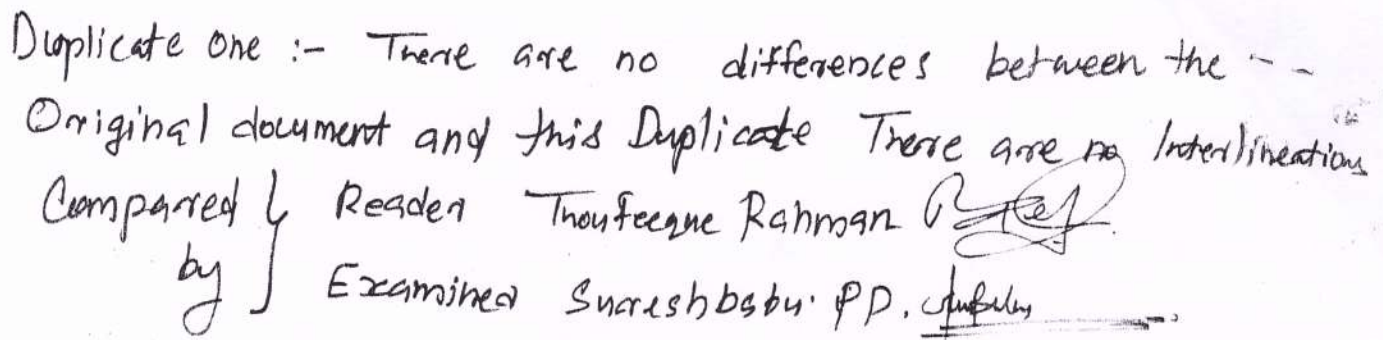 Duplicate one :- There are no differences between the --
Original document and this Duplicate There are no Interlineations
Compared by } Reader Thoufeeque Rahman
Examiner Sureshbabu. P.D.